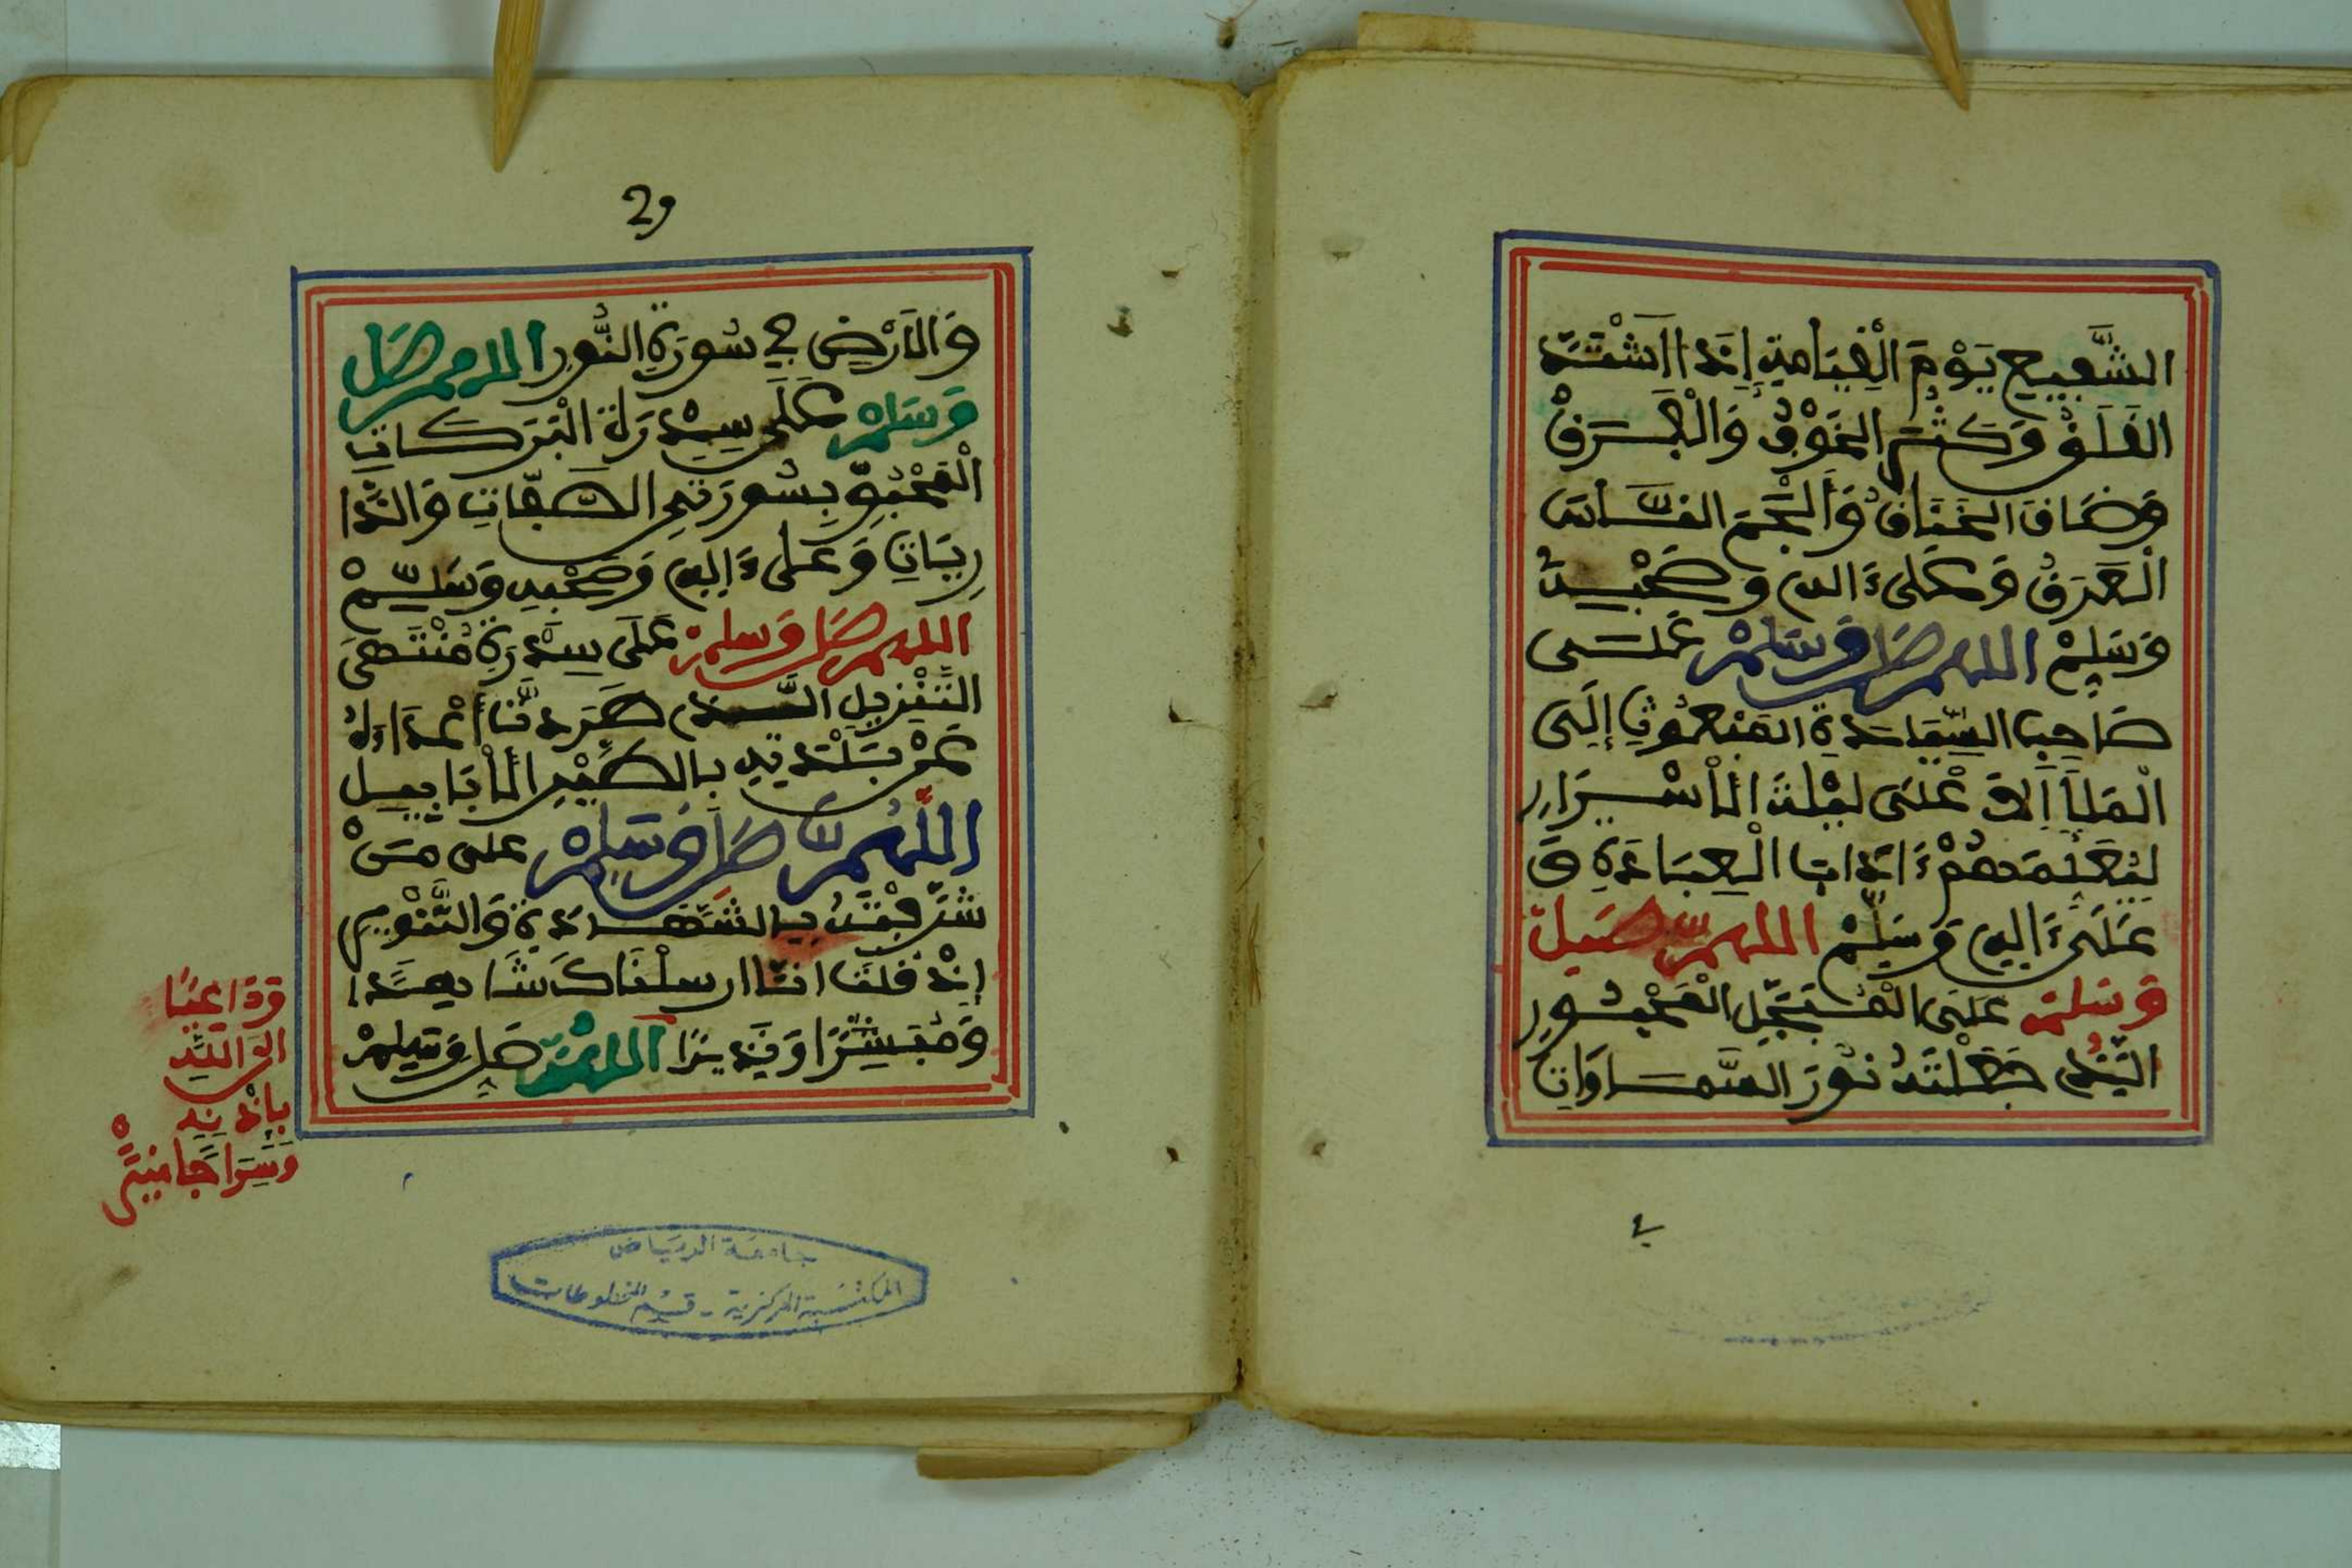 الشَّفِيعِ يَوْمَ الْقِيَامَةِ إِذَا اشْتَدَّ
القَلَقُ وَكَثُرَ الخَوْفُ وَالْفَرَقُ
وَضَاقَ الخَنَاقُ وَأَلْجَمَ النَّاسَ
الْعَرَقُ وَعَلَى ءَالِهِ وَصَحْبِهِ
وَسَلِّمْ اللهم صَلِّ وَسَلِّمْ عَلَى
صَاحِبِ السِّيَادَةِ المَبْعُوثِ إِلَى
الْمَلَأِ الأَعْلَى لَيْلَةَ الْأَسْرَارِ
لِيُعَلِّمَهُمْ ءَادَابَ الْعِبَادَةِ وَ
عَلَى ءَالِهِ وَسَلِّمْ اللهم صَلِّ
وَسَلِّمْ عَلَى الْمُبَجَّلِ الْمَحْبُورِ
الَّذِي جَعَلْتَهُ نُورَ السَّمَاوَاتِ
29
وَالأَرْضِ فِي سُورَةِ النُّورِ اللهم صَلِّ
وَسَلِّمْ عَلَى سِدْرَةِ الْبَرَكَاتِ
الْمَحْبُوِّ بِسُورَتَيِ الصَّافَّاتِ وَالذَّا
رِيَاتِ وَعَلَى ءَالِهِ وَصَحْبِهِ وَسَلِّمْ
اللهم صَلِّ وَسَلِّمْ عَلَى سِدْرَةِ مُنْتَهَى
التَّنْزِيلِ الَّذِي طَرَدْتَ أَعْدَاءَهُ
عَنْ بَلْدَتِهِ بِالطَّيْرِ الْأَبَابِيلِ
اللَّهُمَّ صَلِّ وَسَلِّمْ عَلَى مَنْ
شَرَّفْتَهُ بِالشَّهَادَةِ وَالتَّنْوِيرِ
إِذْ قُلْتَ انَّا ارسلْنَاكَ شَاهِدًا
وَمُبَشِّرًا وَنَذِيرًا اللهم صَلِّ وَسَلِّمْ
وَدَاعِيًا
الى اللَّهِ
بِإِذْنِهِ
وَسِرَاجًا مُنِيرًا
جامعة الرياض
المكتبة المركزية - قسم المخطوطات